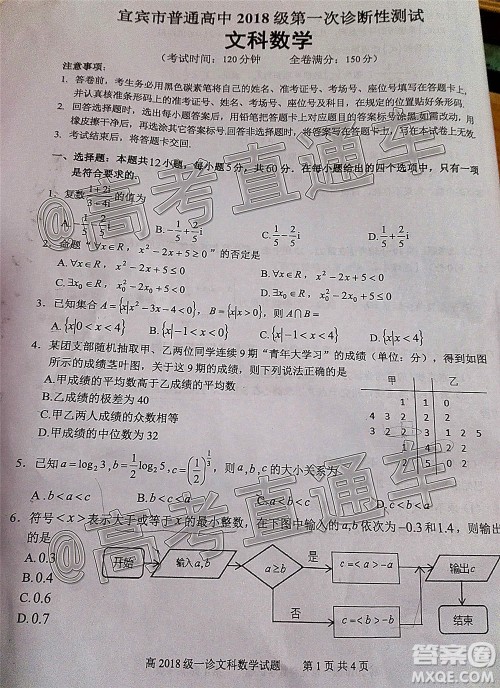 宜宾市普通高中 2018 级第一次诊断性测试
文科数学
(考试时间：120分钟 全卷满分：150分)
注意事项：
1. 答卷前，考生务必用黑色碳素笔将自己的姓名、准考证号、考场号、座位号填写在答题卡上，
并认真核准条形码上的准考证号、姓名、考场号、座位号及科目，在规定的位置贴好条形码.
2. 回答选择题时，选出每小题答案后，用铅笔把答题卡上对应题目的答案标号涂黑.如需改动，用
橡皮擦干净后，再选涂其它答案标号.回答非选择题时，将答案写在答题卡上，写在本试卷上无效.
3. 考试结束后，将答题卡交回.
一、选择题：本题共12小题，每小题5分，共60分．在每小题给出的四个选项中，只有一项
是符合要求的.
1. 复数 (1+2i)/(3-4i) 的值为
B. -1/5+2/5i C. 1/5-2/5i D. 1/5+2/5i
2. 命题“∀x∈R，x²-2x+5≥0”的否定是
A.∀x∈R，x²-2x+5≤0 B.∀x∈R，x²-2x+5<0
C.∃x₀∈R，x²-2x+5≤0 D.∃x₀∈R，x²-2x+5<0
3. 已知集合A={x|x²-3x-4<0}，B={x|x>0}，则A∩B=
A.{x|0<x<4} B.{x|-1<x<0} C.{x|-1<x<4} D.{x|x<4}
4. 某团支部随机抽取甲、乙两位同学连续9期“青年大学习”的成绩（单位：分），得到如图
所示的成绩茎叶图，关于这9期的成绩，则下列说法正确的是
A.甲成绩的平均数高于乙成绩的平均数
B.乙成绩的极差为40
C.甲乙两人成绩的众数相等
D.甲成绩的中位数为32
甲 乙
1 1 0
4 3 2 2
3 2 2 3 1 2 5
1 4 2 2
2 5 0 2
5. 已知a=log₂3,b=1/2log₂5,c=(1/2)^(1/3)，则a,b,c的大小关系为
A.b<a<c B.b<c<a
6. 符号<x>表示大于或等于x的最小整数，在下图中输入的a,b依次为-0.3和1.4，则输出
的是
A. 0.3
B. 0.4
C. 0.6
D. 0.7
开始
输入a,b
a≥b
是
c=<a>-a
输出c
否
c=<b>-b
结束
高 2018 级一诊文科数学试题 第 1 页 共 4 页
@高考直通车
@高考直通车
答案圈
MXQE.COM